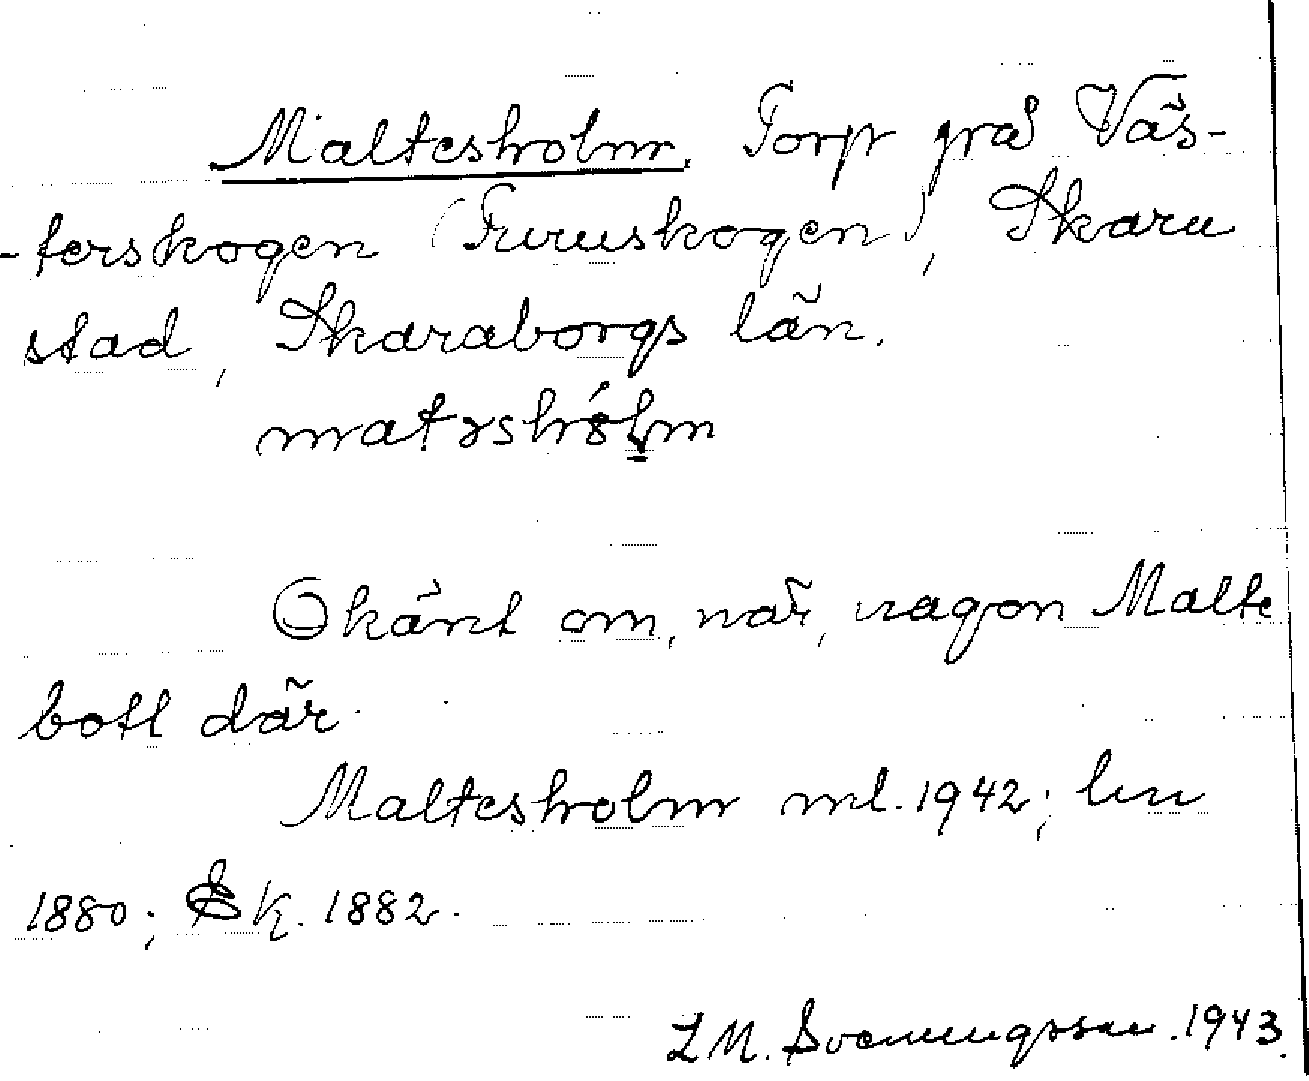 Maltesholm. Torp på Väs-
-terskogen (Furuskogen), Skaru
stad, Skaraborgs län.
matəshólm
Okänt om, när, nagon Malte
bott där.
Maltesholm ml. 1942; hu
1880; Sk. 1882.
L M. Svenungsson. 1943.